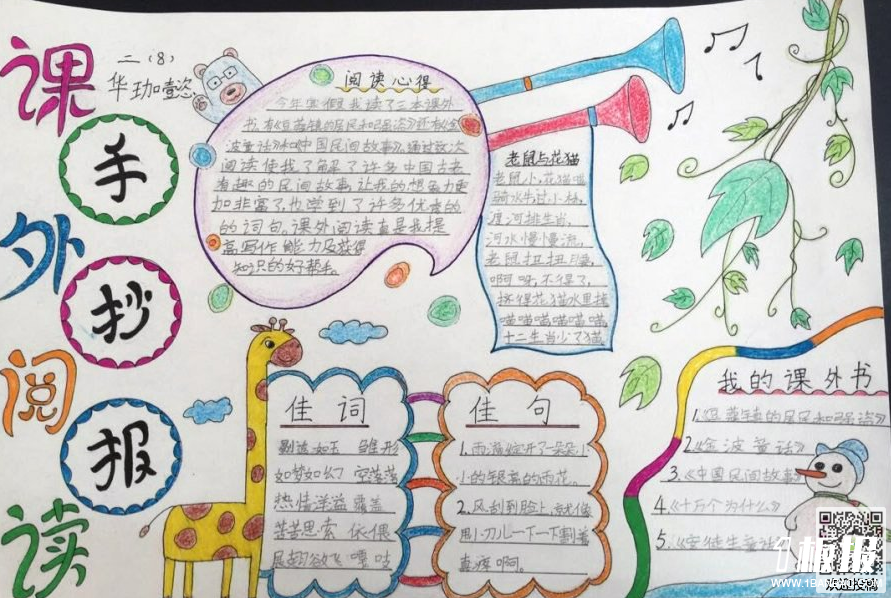 课外阅读
手抄报
二(8)
华珈懿
阅读心得
今年寒假我读了三本课外
书,有《豆蔻镇的居民和强盗》还有《金
波童话》和《中国民间故事》。通过这次
阅读使我了解了许多中国古老
有趣的民间故事,让我的想象力更
加丰富了,也学到了许多优美的
的词句,课外阅读真是我提
高写作能力及获得
知识的好帮手。
老鼠与花猫
老鼠小,花猫喵,
骑水牛过小林,
渡河排生肖,
河水慢慢流,
老鼠扭扭腰,
啊呀,不得了,
挤得花猫水里掉
喵喵喵喵喵喵,
十二生肖少了猫
佳词
雏形
如梦如幻 空荡荡
热情洋溢 覆盖
苦苦思索 依偎
佳句
1.雨滴绽开了朵朵小
小的银亮的雨花。
2.风刮到脸上,就像
用小刀儿一下一下割着
直疼啊。
我的课外书
1.《豆蔻镇的居民和强盗》
2.《金波童话》
3.《中国民间故事》
4.《十万个为什么》
5.《安徒生童话
板报
WWW.1BANBAO.COM
欢迎投稿